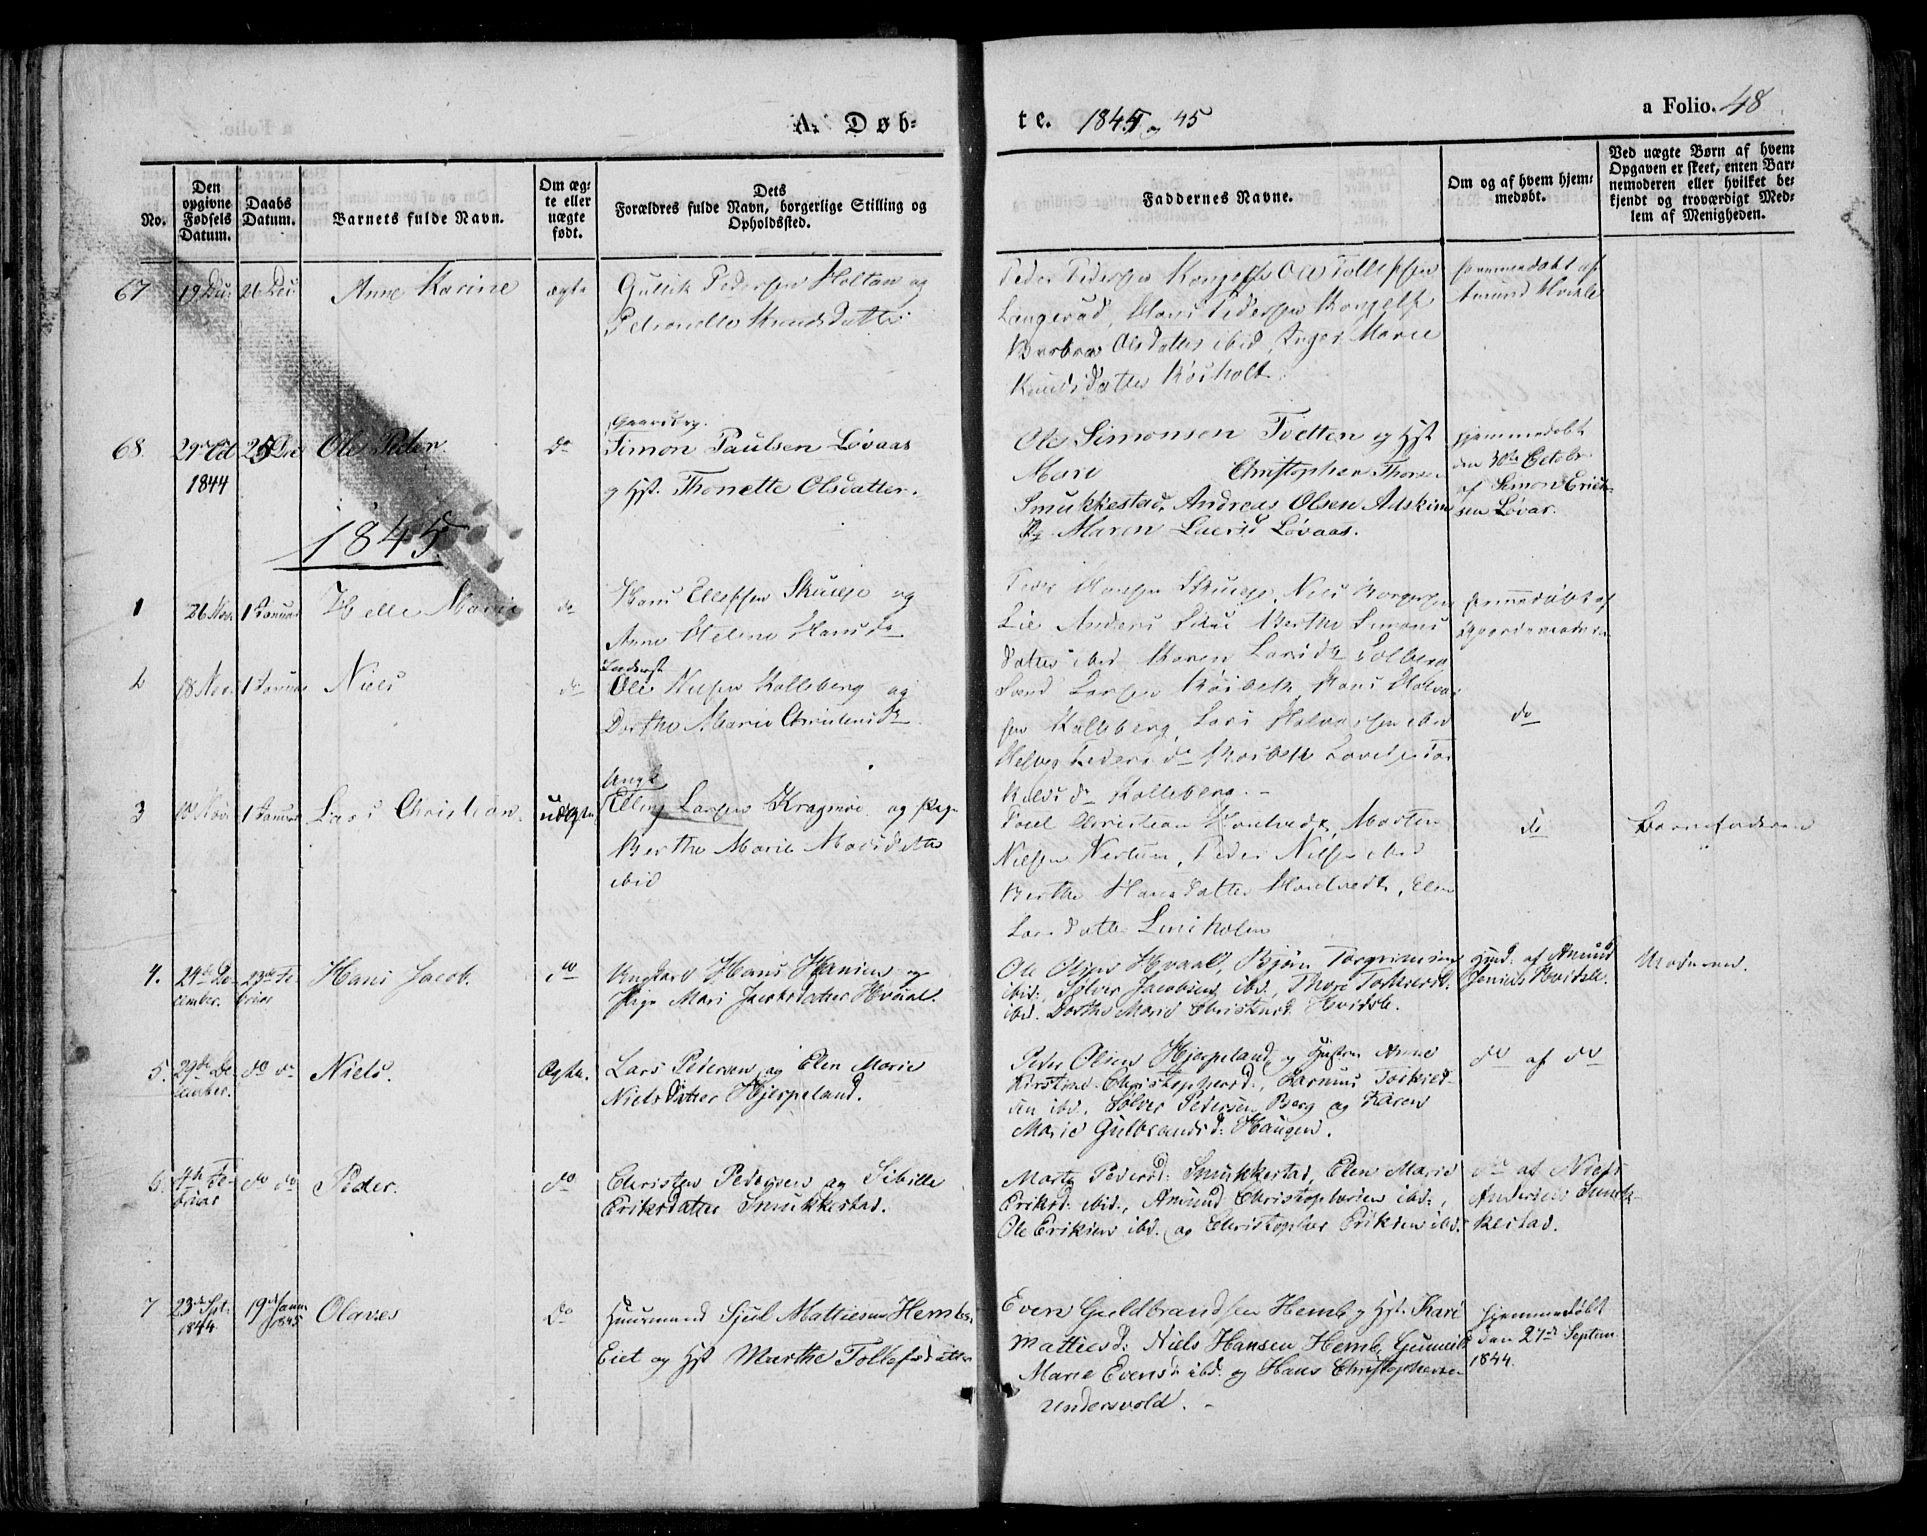 A. Døb-
te. 1844 og 45
a Folio. 48
No.
Den opgivne Fødsels Datum.
Daabs Datum.
Barnets fulde Navn.
Om ægte eller uægte født.
Dets Forældres fulde Navn, borgerlige Stilling og Opholdssted.
Faddernes Navne.
Om og af hvem hjemmedøbt.
Ved uægte Børn af hvem Opgaven er skeet, enten Barnemoderen eller hvilket bekjendt og troværdigt Medlem af Menigheden.
67 19 Dec 26 Dec Anne Karine ægte
Gullik Pedersen Holtan og
Petronelle Knudsdatter
Peder Pedersen Ole Tollefsen
Langerud, Hans Pedersen
Olsdatter ibid, Inger Marie
Knudsdatter
hjemmedøbt af
Amund
68. 29de Oct 1844 25 Dec Ole Peter. do
Gaardbrg.
Simon Paulsen Løvaas
og Hst. Thonette Olsdatter.
Ole Simonsen Tvetten og Hst
Mari Christopher Thor
Smukkestad, Andreas Olsen Adskim
og Maren Laersd Løvaas.
hjemmedøbt
den 30te Octobr
af Simon Erik-
sen Løvas.
1845
1 26 Nov 1 Januar Helle Marie do
Hans Ellefsen Skueje og
Anne Helene Hansd
Peder Hansen Skueje, Niels Borgersen
Lie Anders Berthe Simons
datter ibid Maren Larsd Solberg
hjemmedøbt af
Gjordemoderen
2 18 Nov 1 Januar Niels do
Inderst
Ole Nielsen Kolleberg og
Dorthe Marie Christensd
Svend Larsen Hans Halvor
sen Kolleberg, Lars Halvorsen ibid
Pedersd
Kolleberg.
do
3 10 Nov 1 Januar Lars Christian uægte
Ungk
Elling Larsen Kragnæs og Pige
Berthe Marie Madsdatter
ibid
Poul Christian Morten
Nielsen Peder Nielsen ibid
Berthe Hansdatter Elen
Larsdatter Linnholm
do
Barnefaderen
4. 24de De-
cember. 23de Fe-
bruar Hans Jacob. do
Ungkarl Hans Hansen og
Pige Mari Jacobsdatter Hvaal.
Ole Olsen Hvaal, Bjørn Torgrimsen
ibid., Sølver Jacobsen ibd., Thore
ibd. Dorthe Marie Christensd. Hvidste.
Hmd. af Amund
Jensen
Moderen.
5. 29de De-
cember. do do Niels. Ægte.
Lars Pedersen og Elen Marie
Nielsdatter Hjerpeland.
Peder Olsen Hjerpeland og Hustru Anne
Kirstine Christophersd., Rasmus
sen ibd. Sølver Pedersen Berg og Karen
Marie Gulbrandsd: Haugen.
do af do
6. 4de Fe-
bruar do do Peder. do
Christen Pedersen og Sibille
Eriksdatter Smukkestad.
Marte Pedersd: Smukkestad, Elen Marie
Eriksd: ibid., Amund Christophersen ibd:,
Ole Eriksen ibd. og Christopher Eriksen ibd.
do af Niels
Andersen Smuk-
kestad.
7 23de Spt.
1844 19de Janu
1845 Olaves do
Huusmand Sjul Mathiesen Hembs
Eiet og Hst Marthe Tollefsdatter
Even Guldbrandsen Hemb og Hst. Kari
Mattiesd: Niels Hansen Hemb, Gunnil
Marie Evensd ibd. og Hans Christophersen
Undersvold.
hjemmedøbt
den 27de Septem
1844.